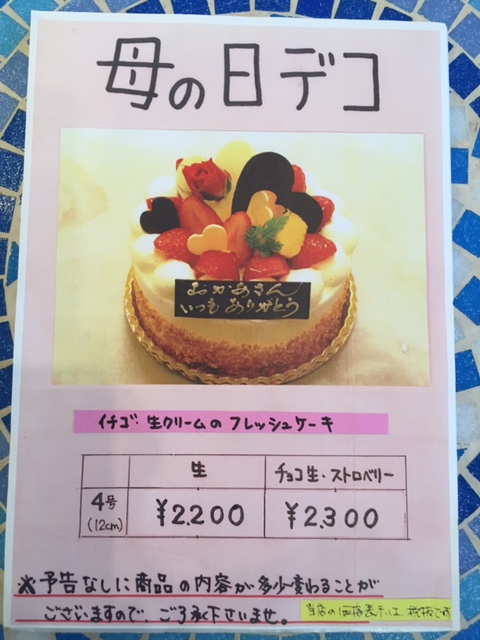 母の日デコ
おかあさん
いつもありがとう
イチゴ・生クリームのフレッシュケーキ
生 チョコ生・ストロベリー
4号 ¥2.200 ¥2.300
(12cm)
※予告なしに商品の内容が多少変わることが
ございますので、ご了承下さいませ。
当店の価格表示は、税抜です